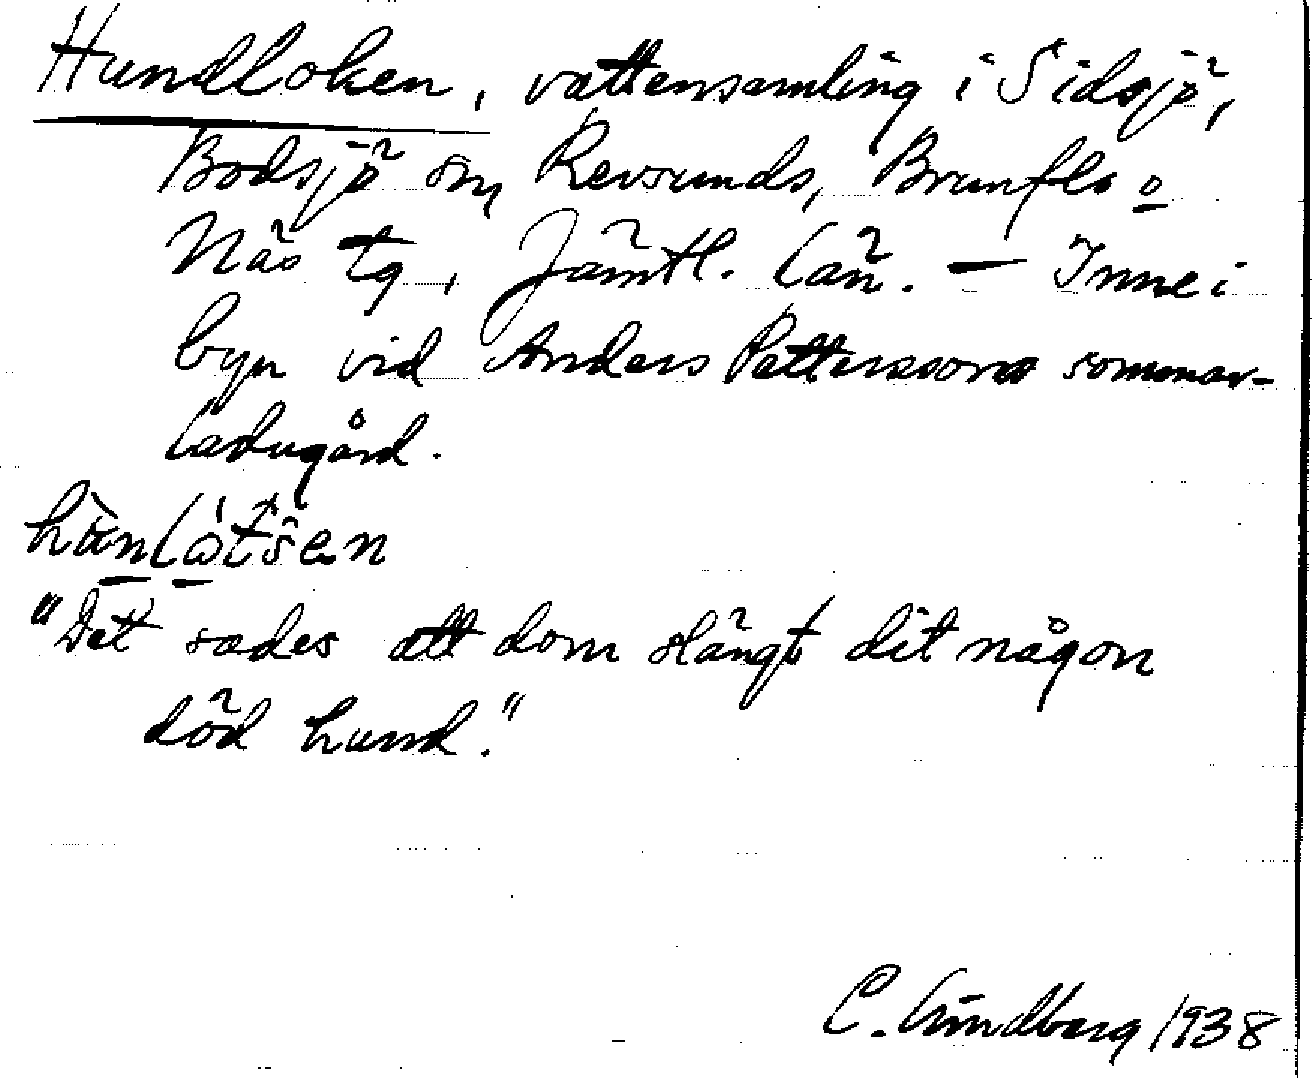 Hundloken, vattensamling i Sidsjö,
Bodsjö sn, Revsunds, Brunflo o
Näs tg, Jämtl. län. — Inne i
byn vid Anders Pettersons sommar-
ladugård.
"Det sades att dom slängt dit någon
död hund."
C. Lindberg 1938